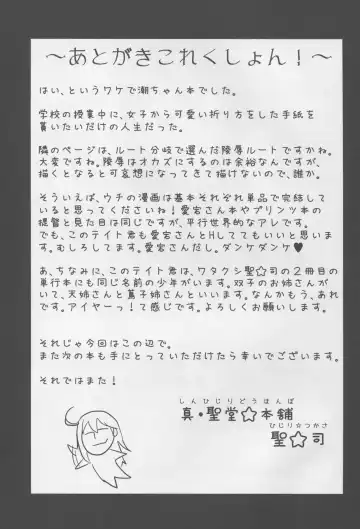 ～あとがきこれくしょん！～
はい、というワケで潮ちゃん本でした。
学校の授業中に、女子から可愛い折り方をした手紙を
貰いたいだけの人生だった。
隣のページは、ルート分岐で選んだ陵辱ルートですかね。
大変ですね。陵辱はオカズにするのは余裕なんですが、
描くとなると可哀想になってきて描けないので、誰か。
そういえば、ウチの漫画は基本それぞれ単品で完結して
いると思ってくださいね！愛宕さん本やプリンツ本の
提督と見た目は同じですが、平行世界的なアレです。
でも、このテイト君も愛宕さんとHしててもいいと思いま
す。むしろしてます。愛宕さんだし。ダンケダンケ♥
あ、ちなみに、このテイト君は、ワタクシ聖☆司の2冊目の
単行本にも同じ名前の少年がいます。双子のお姉さんが
いて、天姉さんと蔦子姉さんといいます。なんかもう、あれ
です。アイヤーっ！て感じです。よろしくお願いします。
それじゃ今回はこの辺で。
また次の本も手にとっていただけたら幸いでございます。
それではまた！
しんひじりどうほんぽ
真・聖堂☆本舗
ひじり☆つかさ
聖☆司